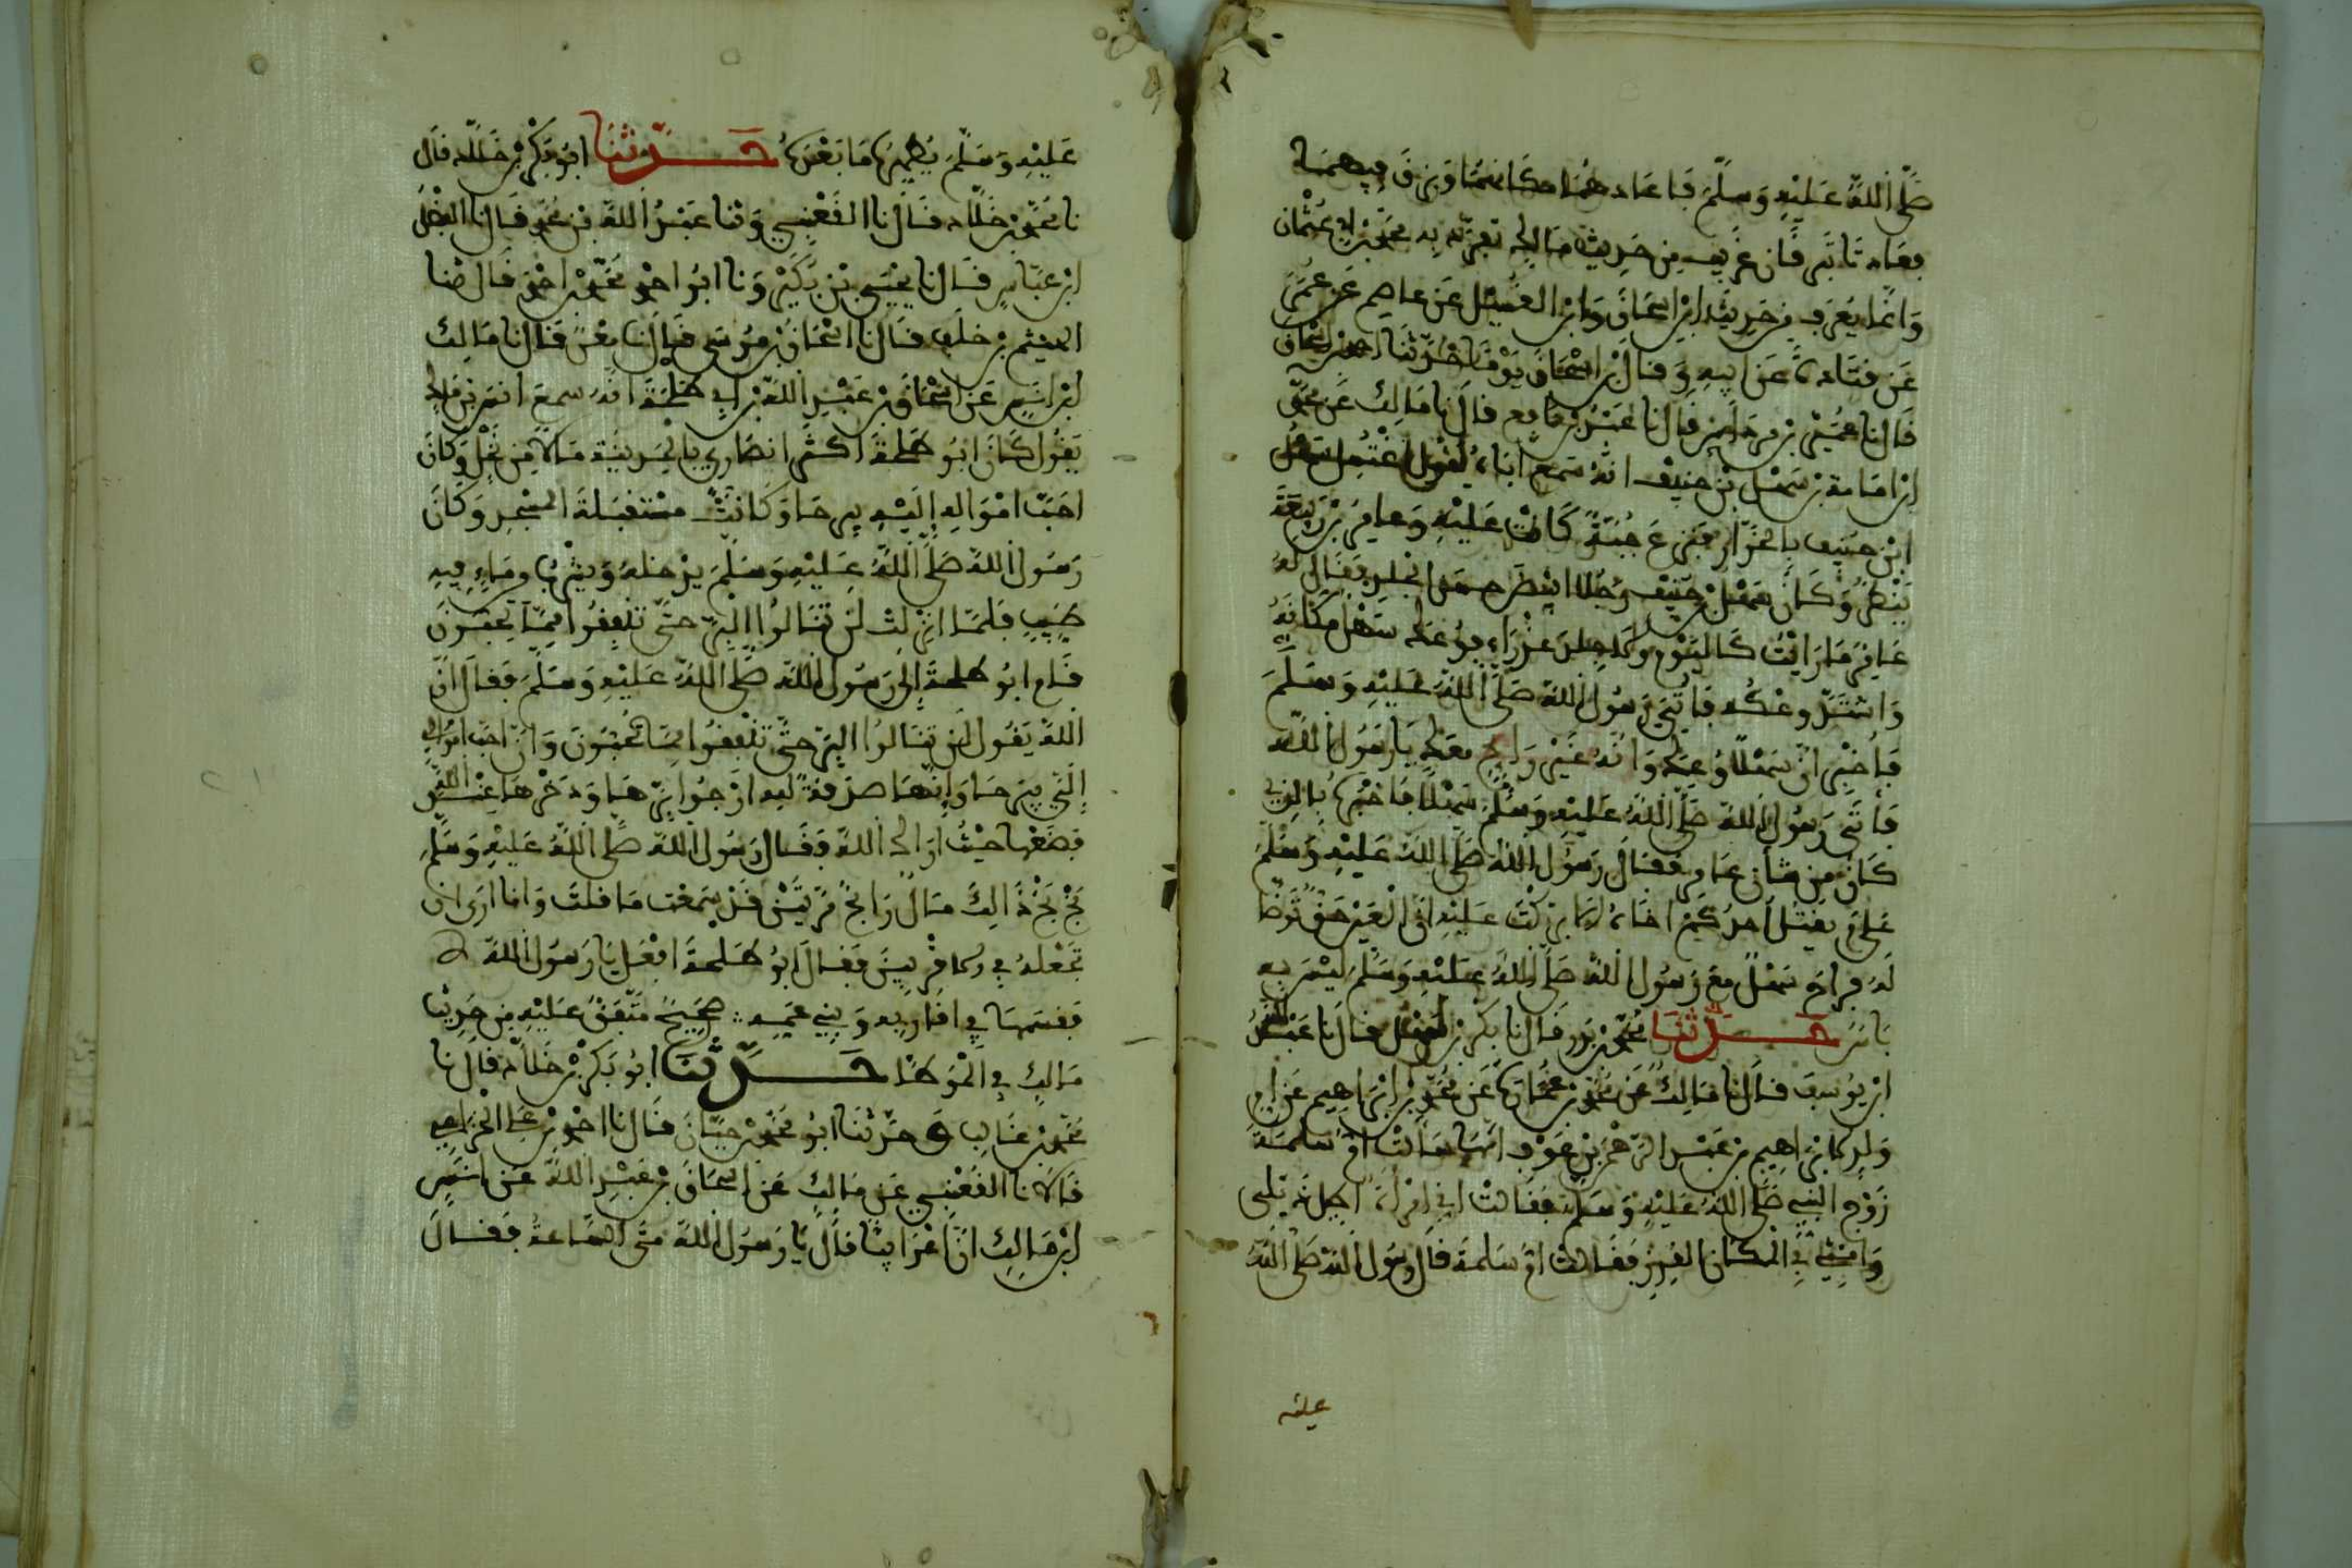 صلى الله عليه وسلم فاعاد هما مكانهما وبزق فيهما
فعاد تا تبرقان غريب من حديث مالك تفرد به محمد بن ابي عثمان
وانما يعرف من حديث ابن اسحاق وابن الغسيل عن عاصم عن عمر
عن قتادة عن ابيه وقال ابن اسحاق يوما حدثنا احمد بن اسحاق
قال نا عيسى بن مرحلين قال نا عبد بن نافع قال نا مالك عن محمد
ابن امامة بن سهل بن حنيف انه سمع اباه يقول اغتسل سهل
ابن حنيف بالخرار فنزع جبة كانت عليه وعامر بن ربيعة
ينظر وكان سهل بن حنيف رجلا ابيض حسن الجلد فقال له
عامر ما رايت كاليوم ولا جلد عذراء فوعك سهل مكانه
واشتد وعكه فاتي رسول الله صلى الله عليه وسلم
فاخبر ان سهلا وعك وانه غير رايح معك يا رسول الله
فاتى رسول الله صلى الله عليه وسلم سهلا فاخبره بالذي
كان من شان عامر فقال رسول الله صلى الله عليه وسلم
على م يقتل احدكم اخاه الا بركت عليه ان العين حق توضا
له فراح سهل مع رسول الله صلى الله عليه وسلم ليس به
باس حدثنا محمد بن بدر قال نا بكر بن سهل قال نا عبد الله
ابن يوسف قال نا مالك عن محمد بن عمارة عن محمد بن ابراهيم عن ام
ولد لابراهيم بن عبد الرحمن بن عوف انها سالت ام سلمة
زوج النبي صلى الله عليه وسلم فقالت اني امراة اطيل ذيلي
وامشي في المكان القذر فقالت ام سلمة قال رسول الله صلى الله
عليه
عليه وسلم يطهره ما بعده حدثنا ابو بكر بن خلاد قال
نا محمد بن خلاد قال نا القعنبي وثنا عبد الله بن محمد قال نا الفضل
ابن عباس قال نا يحيى بن بكير ونا ابو احمد محمد بن احمد قال ثنا
الهيثم بن خلف قال نا اسحاق بن موسى قال نا معن قال نا مالك
ابن انس عن اسحاق بن عبد الله بن ابي طلحة انه سمع انس بن مالك
يقول كان ابو طلحة اكثر انصاري بالمدينة مالا من نخل وكان
احب امواله اليه بير حا وكانت مستقبلة المسجد وكان
رسول الله صلى الله عليه وسلم يدخله ويشرب من ماء فيه
طيب فلما انزلت لن تنالوا البر حتى تنفقوا مما تحبون
قام ابو طلحة الى رسول الله صلى الله عليه وسلم فقال ان
الله يقول لن تنالوا البر حتى تنفقوا مما تحبون وان احب اموالي
الي بير حا وانها صدقة لله ارجوا برها وذخرها عند الله
فضعها حيث اراك الله فقال رسول الله صلى الله عليه وسلم
بخ بخ ذالك مال رابح مرتين قد سمعت ما قلت وانا ارى ان
تجعله في الاقربين فقال ابو طلحة افعل يا رسول الله
فقسمها في اقاربه وبني عمه صحيح متفق عليه من حديث
مالك في الموطا حدثنا ابو بكر بن خلاد قال نا
محمد بن غالب وحدثنا ابو محمد بن حيان قال نا احمد بن علي الخزاعي
قالا نا القعنبي عن مالك عن اسحاق بن عبد الله عن انس
ابن مالك ان اعرابيا قال يا رسول الله متى الساعة فقال